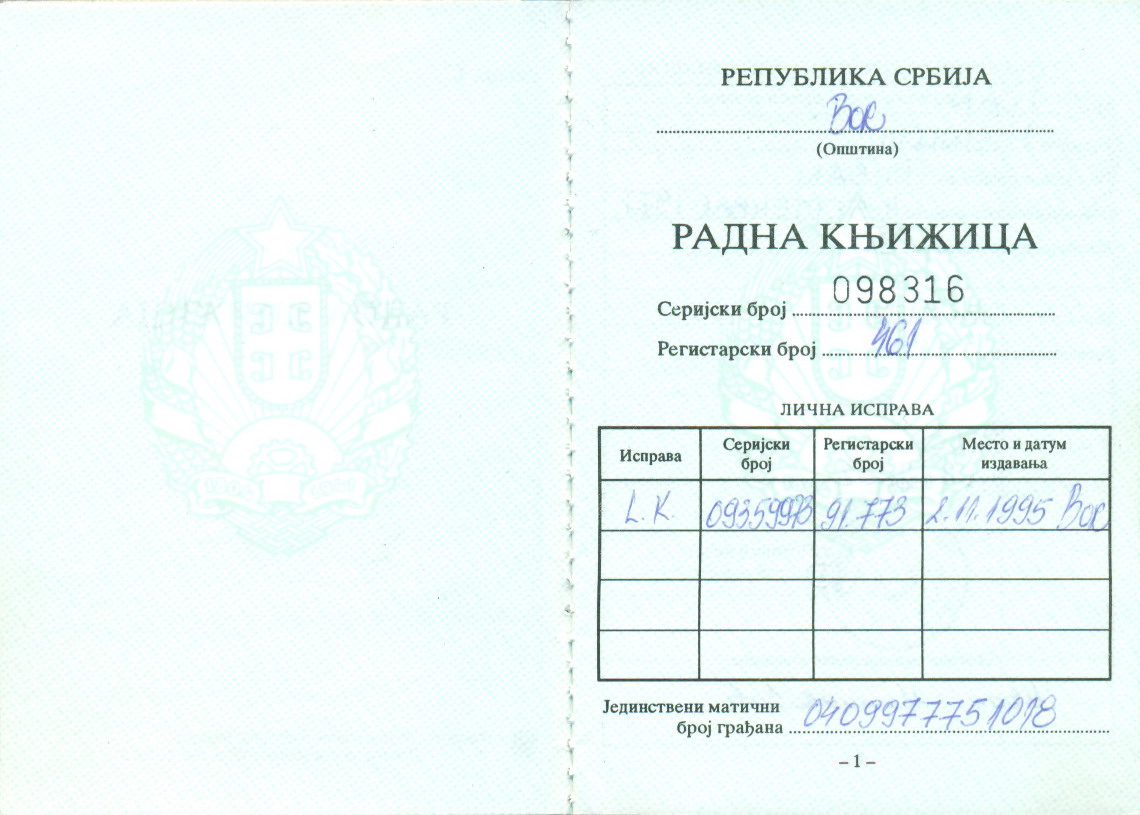 РЕПУБЛИКА СРБИЈА
Bor
(Општина)
РАДНА КЊИЖИЦА
Серијски број 098316
Регистарски број 461
ЛИЧНА ИСПРАВА
Исправа Серијски број Регистарски број Место и датум издавања
L.K. 09359973 91.773 2.11.1995 Bor
Јединствени матични
број грађана 0409977751018
– 1 –